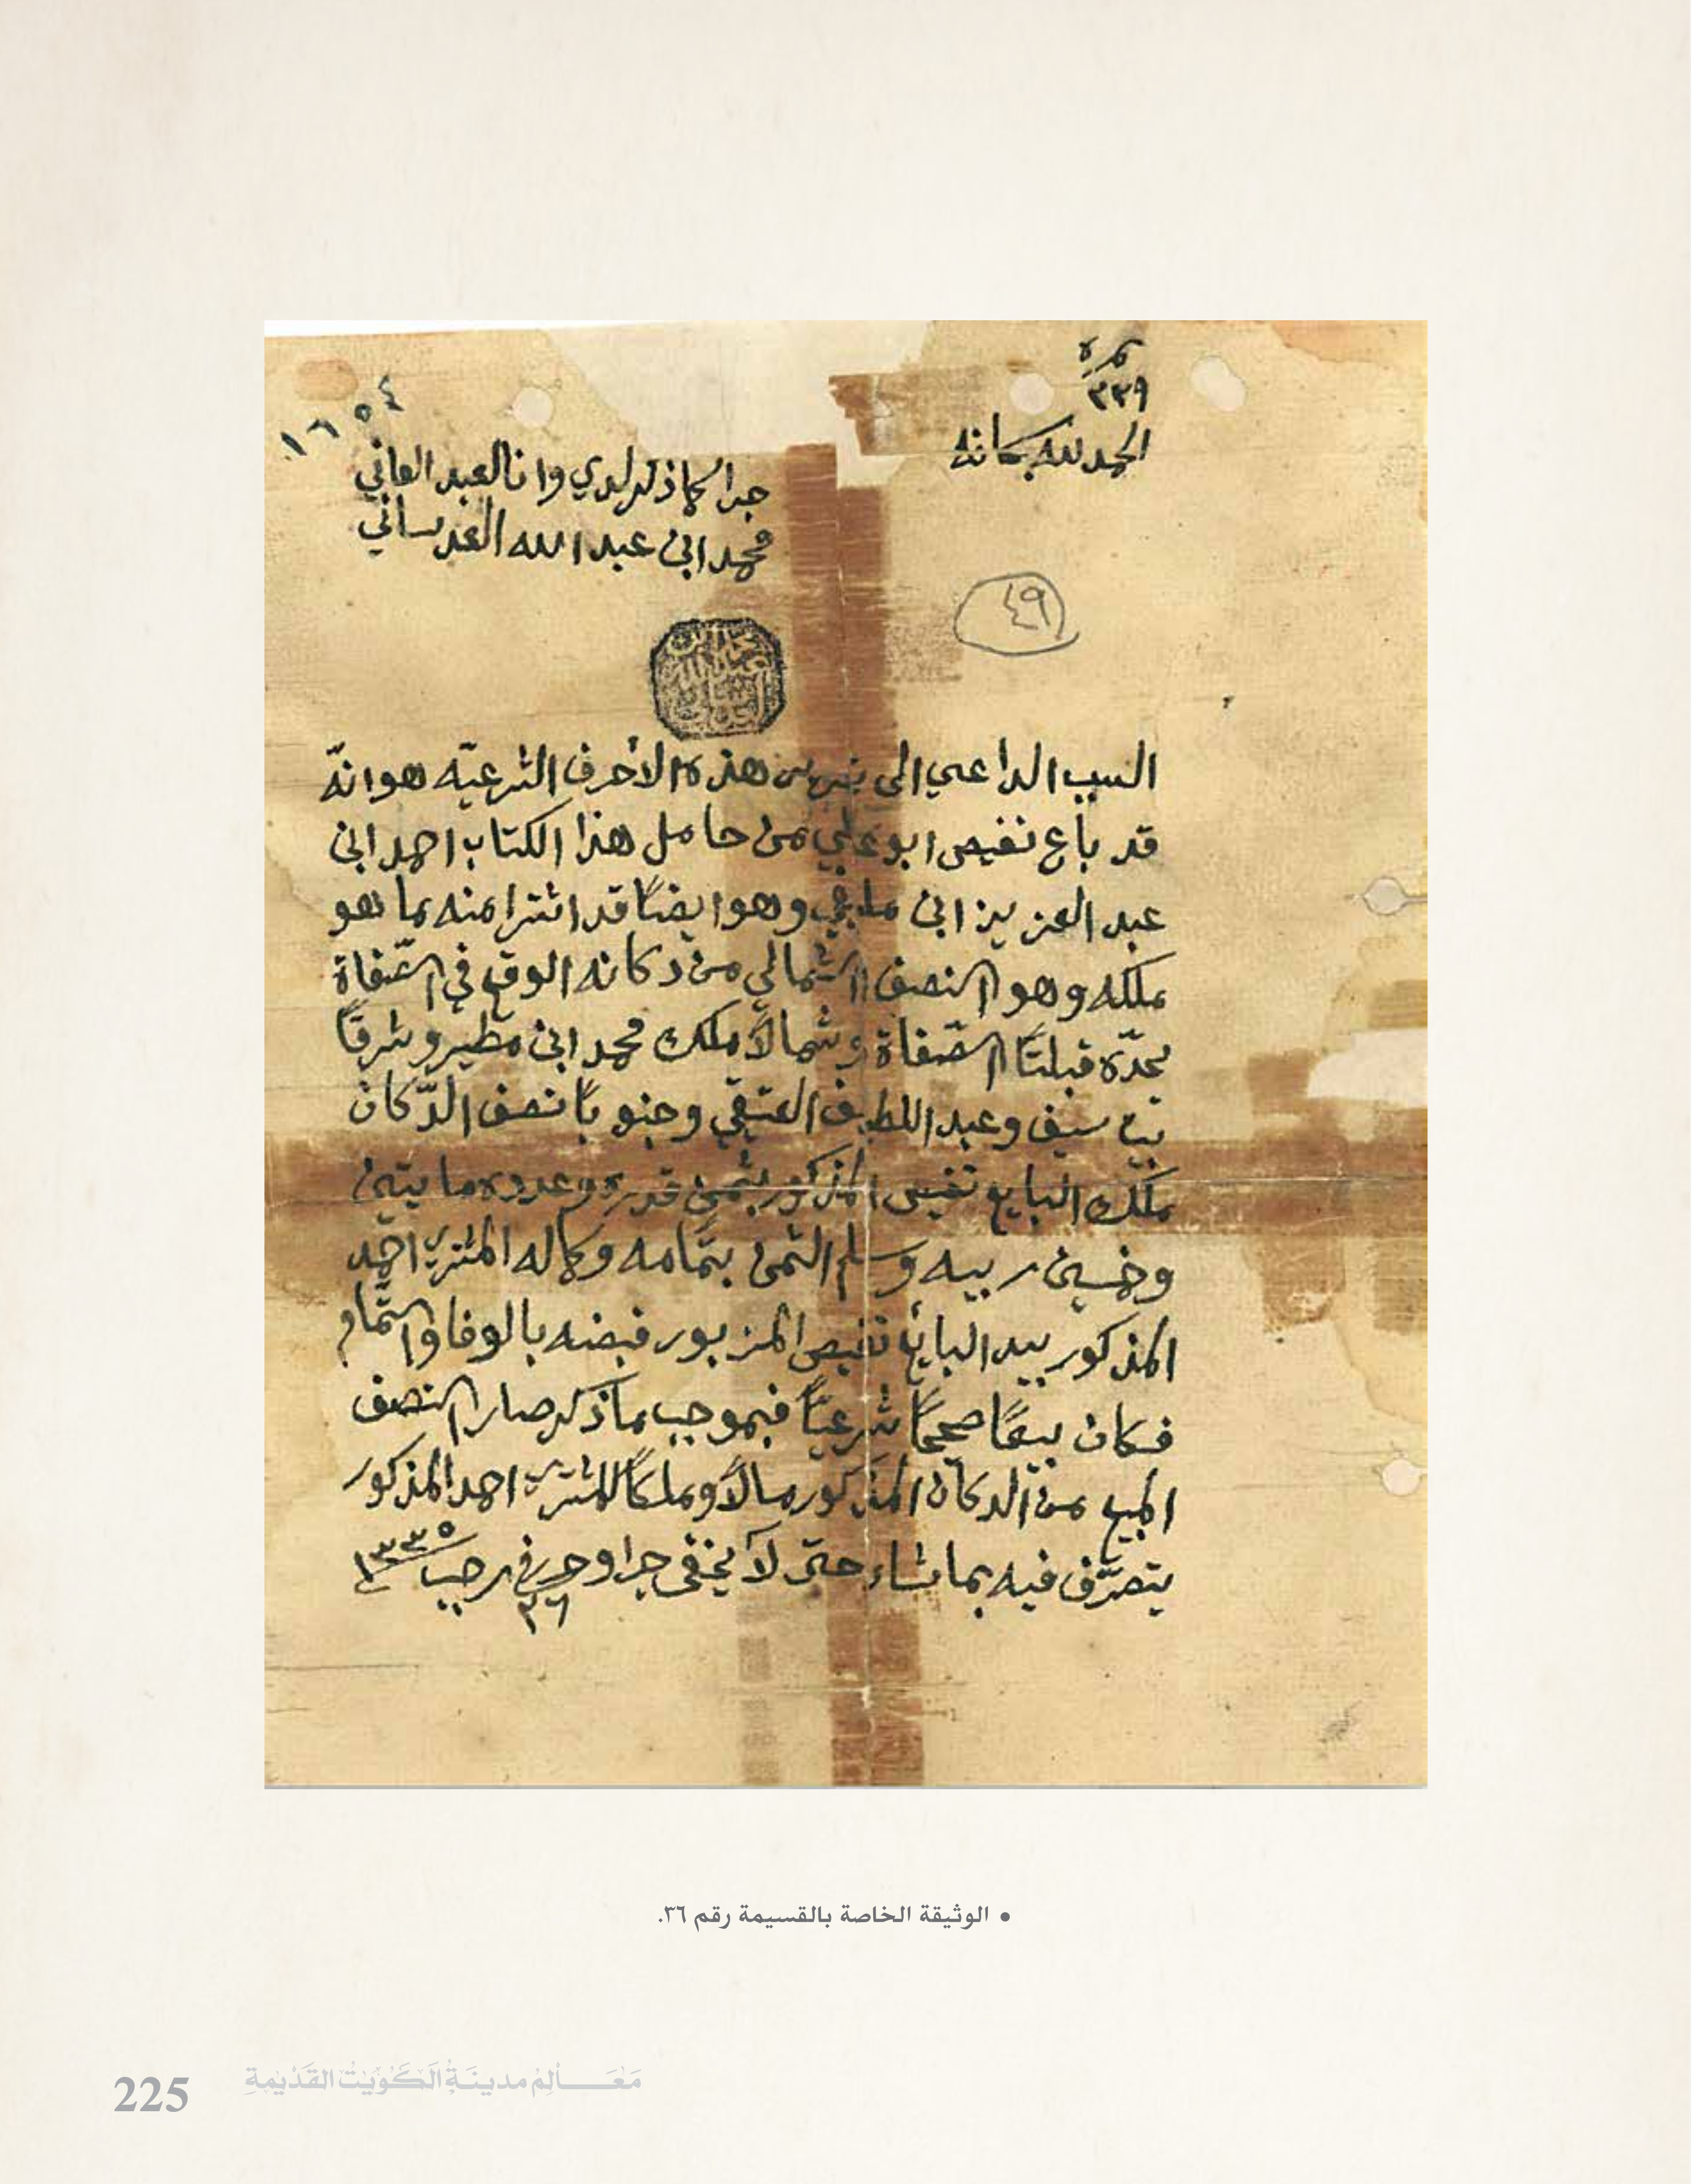 نمره
٣٣٩
الحمد لله سبحانه
١٦٥٤
جرا كما ذكر لدي وانا العبد الفاني
محمد ابن عبد الله العدساني
٤٩
محمد ابن عبد الله العدساني
السبب الداعي الى تحرير هذه الأحرف الشرعيّه هو انّه
قد باع نفيص ابو علي من حامل هذا الكتاب احمد ابن
عبد العزيز ابن وهو ايضًا قد اشترا منه ما هو
ملكه وهو النصف الشمالي من دكانه الوقع في الصّفاة
يحدّه قبلتًا الصّفاة وشمالاً ملك محمد ابن مطير وشرقًا
بيت سيف وعبد اللطيف العتيقي وجنوبًا نصف الدّكان
ملك البايع نفيص المذكور بثمن قدره وعدده مايتين
وخمسين ربيه وسلم الثمن بتمامه وكماله المشتري احمد
المذكور بيد البايع نفيص المزبور فبضه بالوفا والتّمام
فكان بيعًا صحيحًا شرعيًا فبموجب ما ذكر صار النصف
المبيع من الدكان المذكور مالاً وملكًا للمشتري احمد المذكور
يتصرّف فيه بما شاء حتى لا يخفى جرا وحرر في رجب ١٣٣٥
٢٦
• الوثيقة الخاصة بالقسيمة رقم ٣٦.
225 مَعَـــالِمُ مدينَةِ الكُوَيْتِ القَدْيمةِ